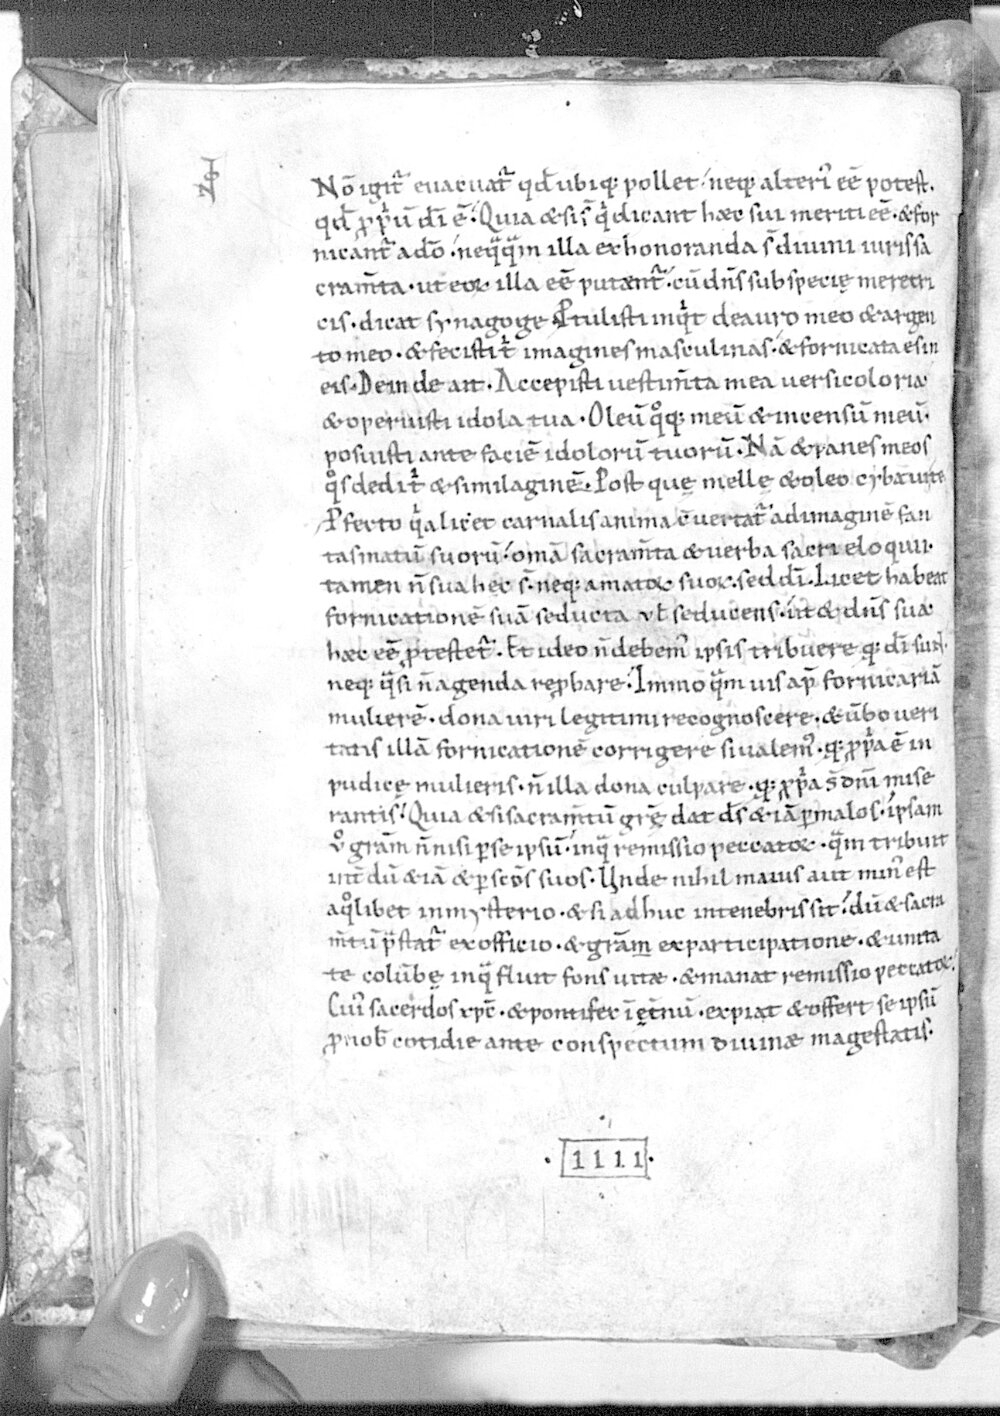 Nō igit᷑ euacuat᷑ qd̄ ubiq; pollet · neq; alteri᷒ eē potest.
qd̄ ꝓpͥū dī ē · Quia & si s̄ qͥ dicant hæc sui meriti eē · & for
nicant᷑ a dō · neqͣqͣm illa exhonoranda s̄ diuini iuris sa
cram̄ta · ut eoꝝ illa eē putent᷑ · cū dn̄s sub specię meretri
cis · dicat synagogę Ꝑtulisti inqͥt de auro meo & argen
to meo · & fecisti t᷑ imagines masculinas · & fornicata es in
eis · Deinde ait · Accepisti uestim̄ta mea uersicoloria
& operuisti idola tua · Oleū qͦq; meū & incensū meū ·
posuisti ante faciē idolorū tuorū · Nā & panes meos
qͦs dedi t᷑ & similaginē · Post quę melle & oleo cybaui te
Ꝓfecto qͥa licet carnalis anima c̄uertat᷑ ad imaginē fan
tasmatū suorū · om̄a sacram̄ta & uerba sacri eloquii ·
tamen n̄ sua hec s̄ · neq; amatoꝝ suoꝝ · sed dī · Licet habeat
fornicationē suā seducta ul̄ seducens · ut & dn̄s sua
hæc eē ꝓtestet᷑ · Et ideo n̄ debem᷒ ipsis tribuere q; dī sunt ·
neq; qͣsi n̄ agenda reꝓbare · Immo qͣm uis ap̄ fornicariā
mulierē · dona uiri legitimi recognoscere · & ūbo ueri
tatis illā fornicationē corrigere si ualem᷒ · q; ꝓpͥa ē in
pudicę mulieris · n̄ illa dona culpare · q; ꝓpͥa s̄ dn̄i mise
rantis · Quia & si sacram̄tū grę̄ dat ds̄ & iā ꝑ malos · ipsam
ůͦ grām n̄ nisi ꝑ se ipsū · inqͣ remissio peccatoꝝ · qͣm tribuit
int̄dū & iā & ꝑ scōs suos · Unde nihil maius aut min᷒ est
a qͦlibet in mysterio · & si adhuc in tenebris sit · dū & sacra
m̄tū p̄stat᷑ ex officio · & grām ex participatione · & unita
te colūbę inqͣ fluit fons uitæ · & manat remissio peccatoꝝ ·
Cui᷒ sacerdos xp̄c · & pontifex ī ęt̄nū · expiat & offert se ipsū
ꝓ nob̄ cotidie ante conspectum diuinæ magestatis ·
· IIII ·